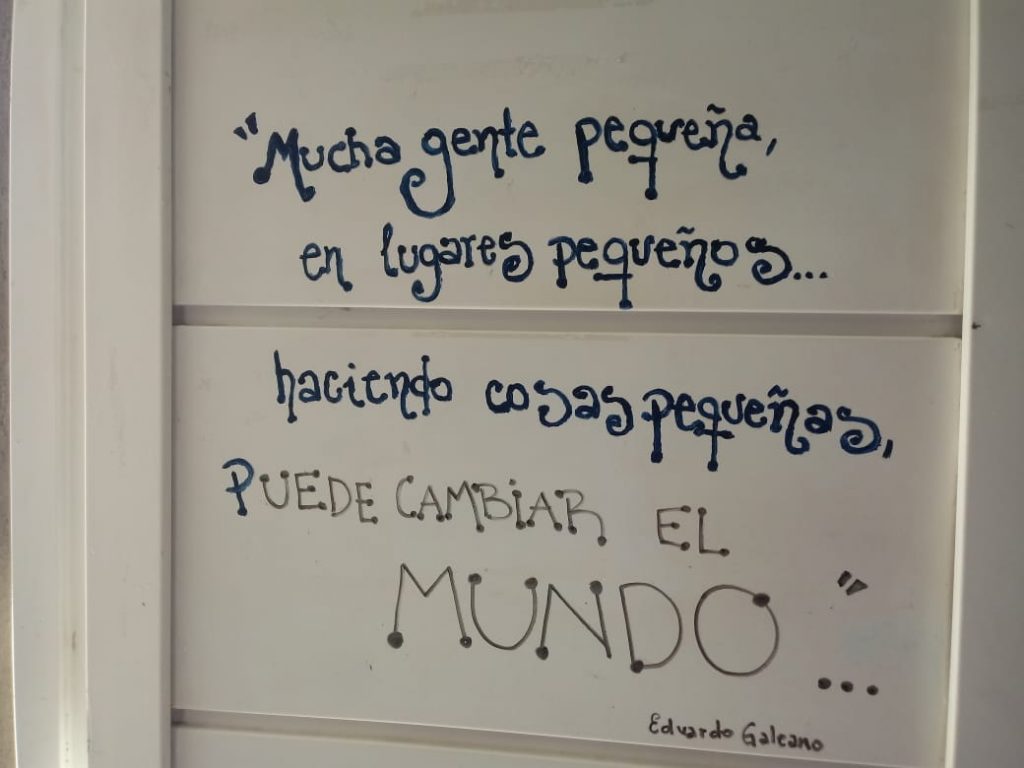 "Mucha gente pequeña,
en lugares pequeños...
haciendo cosas pequeñas,
PUEDE CAMBiAR EL
MUNDO"...
Eduardo Galeano